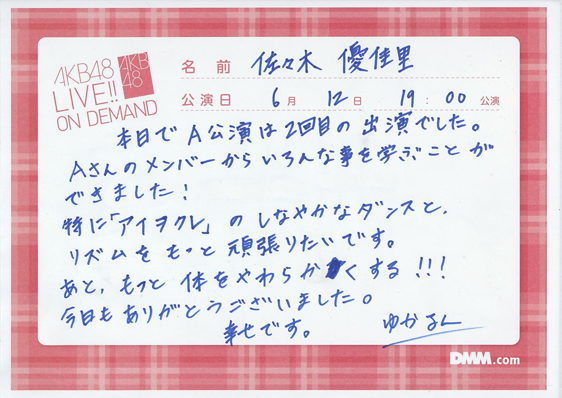 AKB48
LIVE!!
ON DEMAND
AKB
48
名前 佐々木 優佳里
公演日 6月 12日 19:00 公演
本日でA公演は2回目の出演でした。
Aさんのメンバーからいろんな事を学ぶことが
できました!
特に「アイヲクレ」のしなやかなダンスと、
リズムをもっと頑張りたいです。
あと、もっと体をやわらかくする!!!
今日もありがとうございました。
幸せです。 ゆかるん
DMM.com